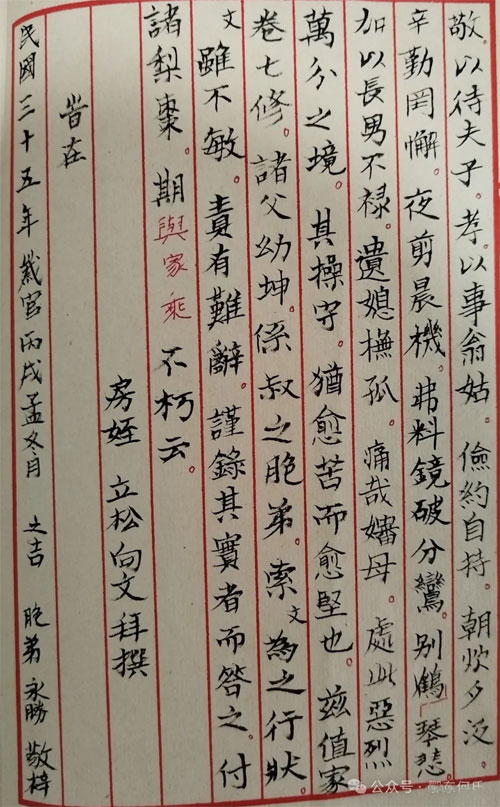 敬。以待夫子。孝。以事翁姑。儉約自持。朝炊夕汲。
辛勤罔懈。夜剪晨機。弗料鏡破分鸞。别鶴琴悲。
加以長男不禄。遺媳撫孤。痛哉嬸母。處此惡烈
萬分之境。其操守。猶愈苦而愈堅也。兹值家
卷七修。諸父幼坤。係叔之胞弟。索文為之行狀。
文雖不敏。責有難辭。謹錄其實者而答之。付
諸梨棗。期與家乘不朽云。
房姪 立松向文拜撰
旹在
民國三十五年 歲宫丙戌孟冬月 之吉 胞弟永勝敬梓
公众号·
何氏